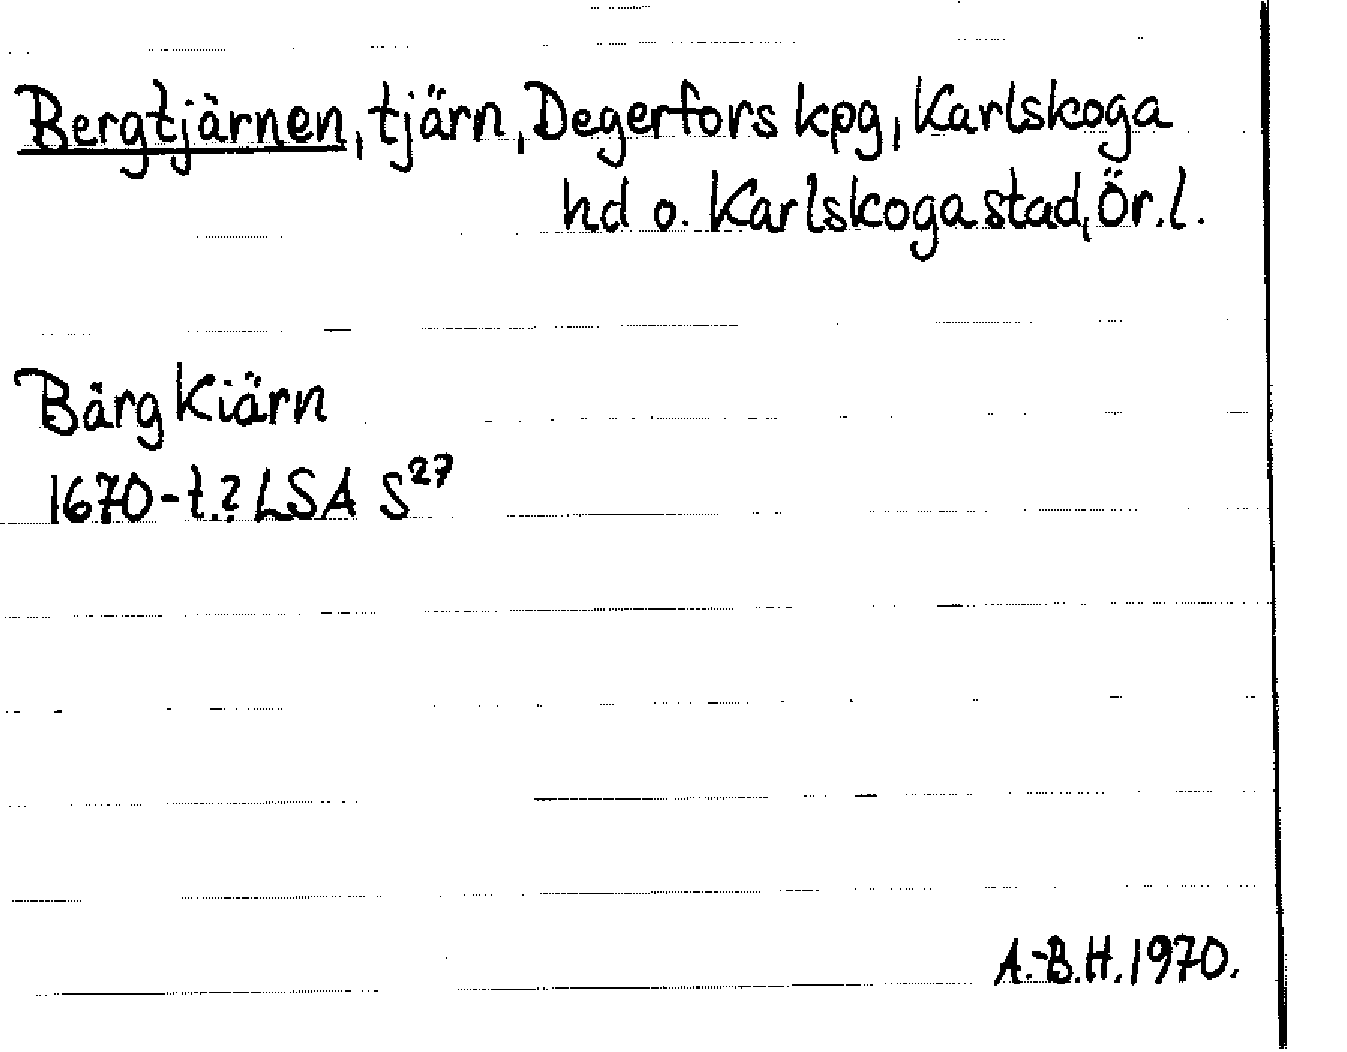 Bergtjärnen, tjärn, Degerfors kpg, Karlskoga
hd o. Karlskoga stad, Ör. l.
Bärg Kiärn
1670-t.? LSA S27
A.-B.H. 1970.